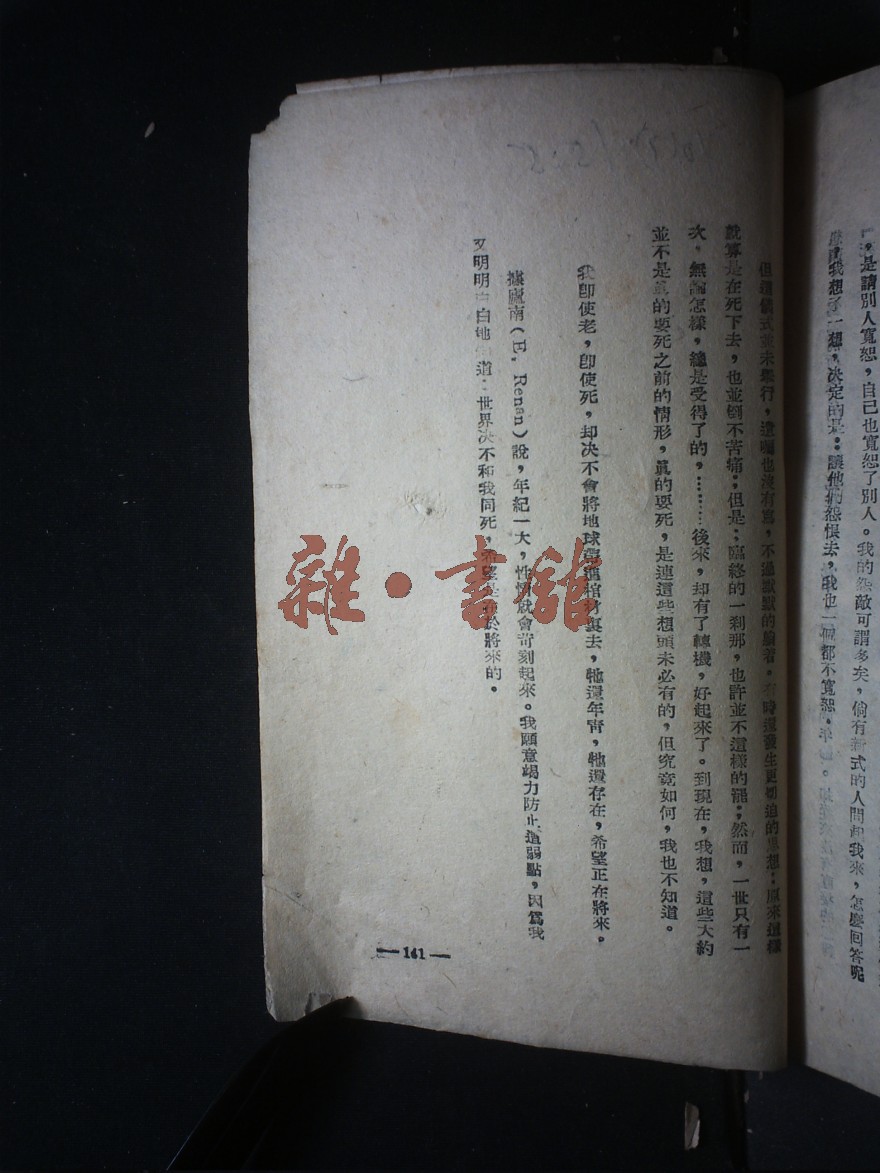 是請別人寬恕，自己也寬恕了別人。我的怨敵可謂多矣，倘有新式的人問起我來，怎麽回答呢
我想了一想，决定的是：讓他們怨恨去，我也一個都不寬恕。
但這儀式並未舉行，遺囑也沒有寫，不過默默的躺着，有時還發生更切迫的思想：原來這樣
就算是在死下去，也並倒不苦痛；但是；臨終的一刹那，也許並不這樣的罷；然而，一世只有一
次，無論怎樣，總是受得了的，………後來，却有了轉機，好起來了。到現在，我想，這些大約
並不是眞的要死之前的情形，眞的要死，是連這些想頭未必有的，但究竟如何，我也不知道。
我卽使老，卽使死，却决不會將地球帶進棺材裏去，牠還年靑，牠還存在，希望正在將來。
據廬南（E. Renan）說，年紀一大，性情就會苛刻起來。我願意竭力防止這弱點，因爲我
又明明白白地 道：世界决不和我同死，希望是在於將來的。
—141—
雜·書館